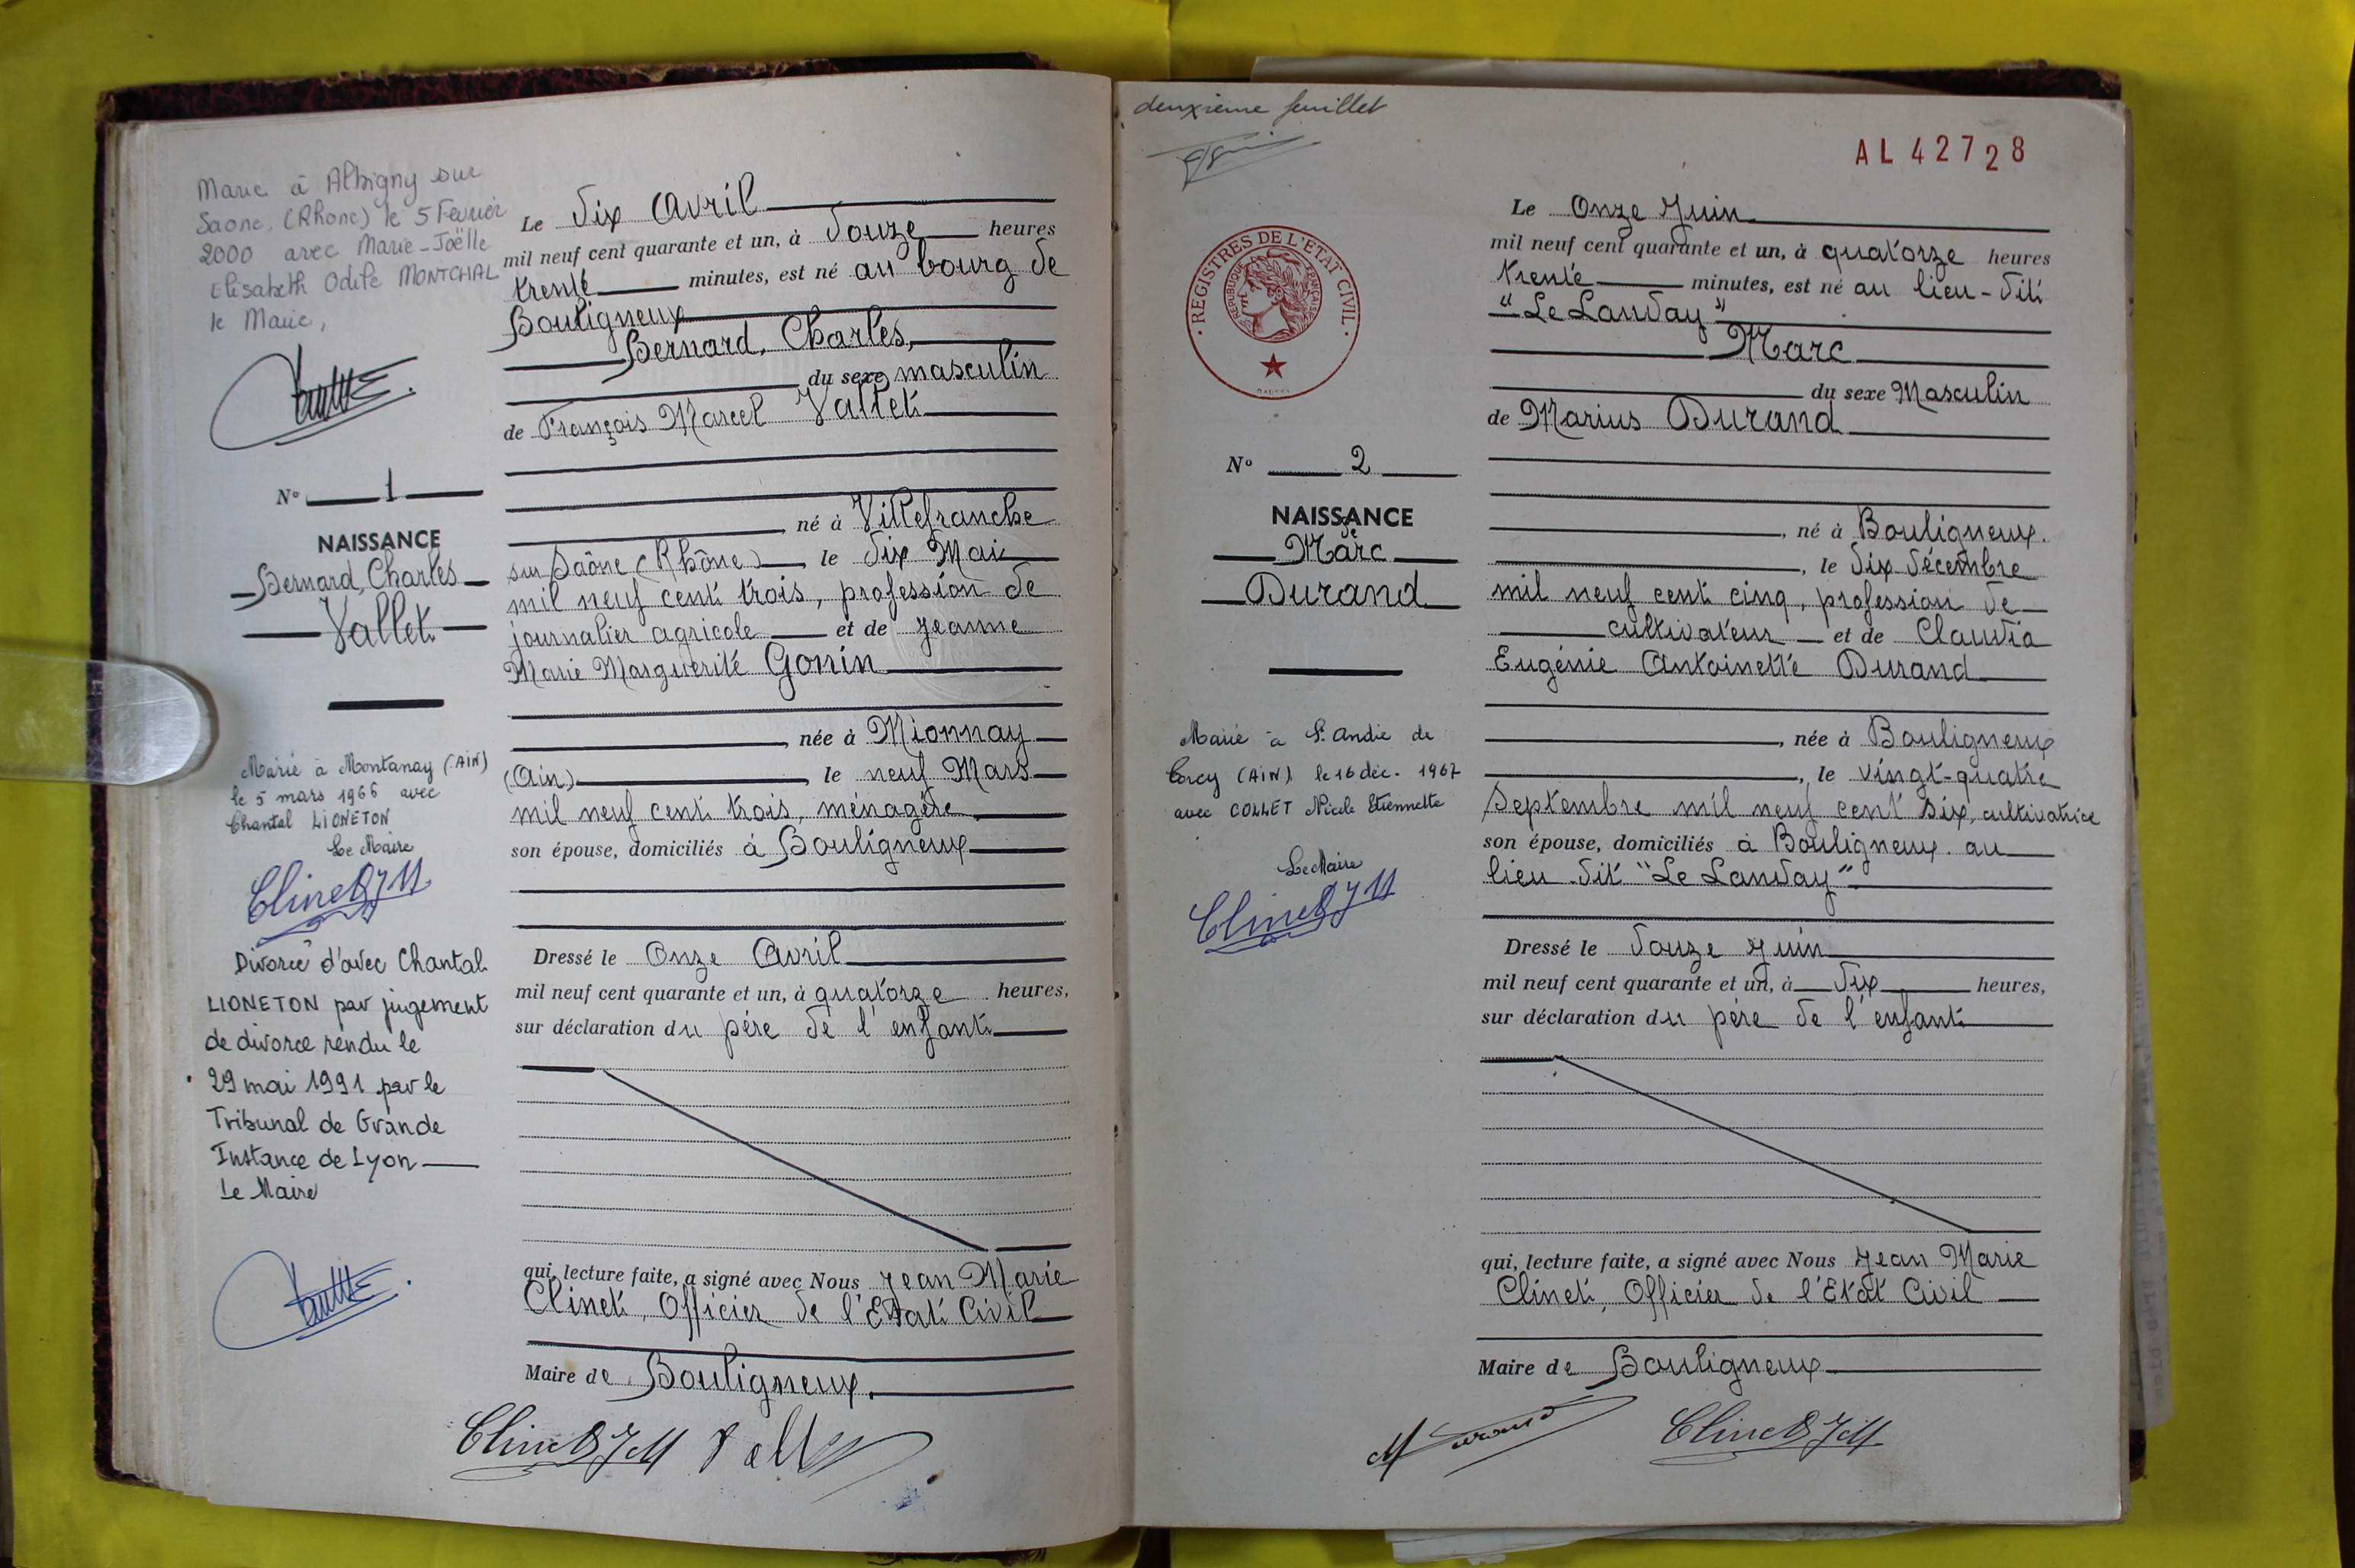 Marié à Albigny sur
Saone, (Rhone) le 5 Février
2000 avec Marie-Joëlle
Elisabeth Odile MONTCHAL
le Maire,
N° 1
NAISSANCE
Bernard, Charles
Vallet
Marié à Montanay (AIN)
le 5 mars 1966 avec
Chantal LIONETON
Le Maire
Clinet JM
Divorcé d'avec Chantal
LIONETON par jugement
de divorce rendu le
29 mai 1991 par le
Tribunal de Grande
Instance de Lyon
Le Maire
Le dix Avril
mil neuf cent quarante et un, à douze heures
trente minutes, est né au bourg de
Bouligneux
Bernard, Charles,
du sexe masculin
de François Marcel Vallet
né à Villefranche
sur Saône (Rhône) le dix Mai
mil neuf cent trois, profession de
journalier agricole et de Jeanne
Marie Marguerite Gonin
, née à Mionnay
(Ain), le neuf Mars
mil neuf cent trois, ménagère
son épouse, domiciliés à Bouligneux
Dressé le Onze Avril
mil neuf cent quarante et un, à quatorze heures,
sur déclaration du père de l'enfant
qui, lecture faite, a signé avec Nous Jean Marie
Clinet, Officier de l'Etat Civil
Maire de Bouligneux.
Clinet JM Vallet
deuxième feuillet
AL 42728
REGISTRES DE L'ÉTAT CIVIL
RÉPUBLIQUE FRANÇAISE
N° 2
NAISSANCE
de
Marc
Durand
Marié à St André de
Corcy (AIN) le 16 déc. 1967
avec COLLET Nicole Etiennette
Le Maire
Clinet JM
Le Onze Juin
mil neuf cent quarante et un, à quatorze heures
trente minutes, est né au lieu-dit
"Le Landay"
Marc
du sexe Masculin
de Marius Durand
, né à Bouligneux.
, le dix décembre
mil neuf cent cinq, profession de
cultivateur et de Claudia
Eugénie Antoinette Durand
, née à Bouligneux
, le vingt-quatre
Septembre mil neuf cent six, cultivatrice
son épouse, domiciliés à Bouligneux. au
lieu dit "Le Landay"
Dressé le douze Juin
mil neuf cent quarante et un, à dix heures,
sur déclaration du père de l'enfant
qui, lecture faite, a signé avec Nous Jean Marie
Clinet, Officier de l'Etat Civil
Maire de Bouligneux
M Durand Clinet JM